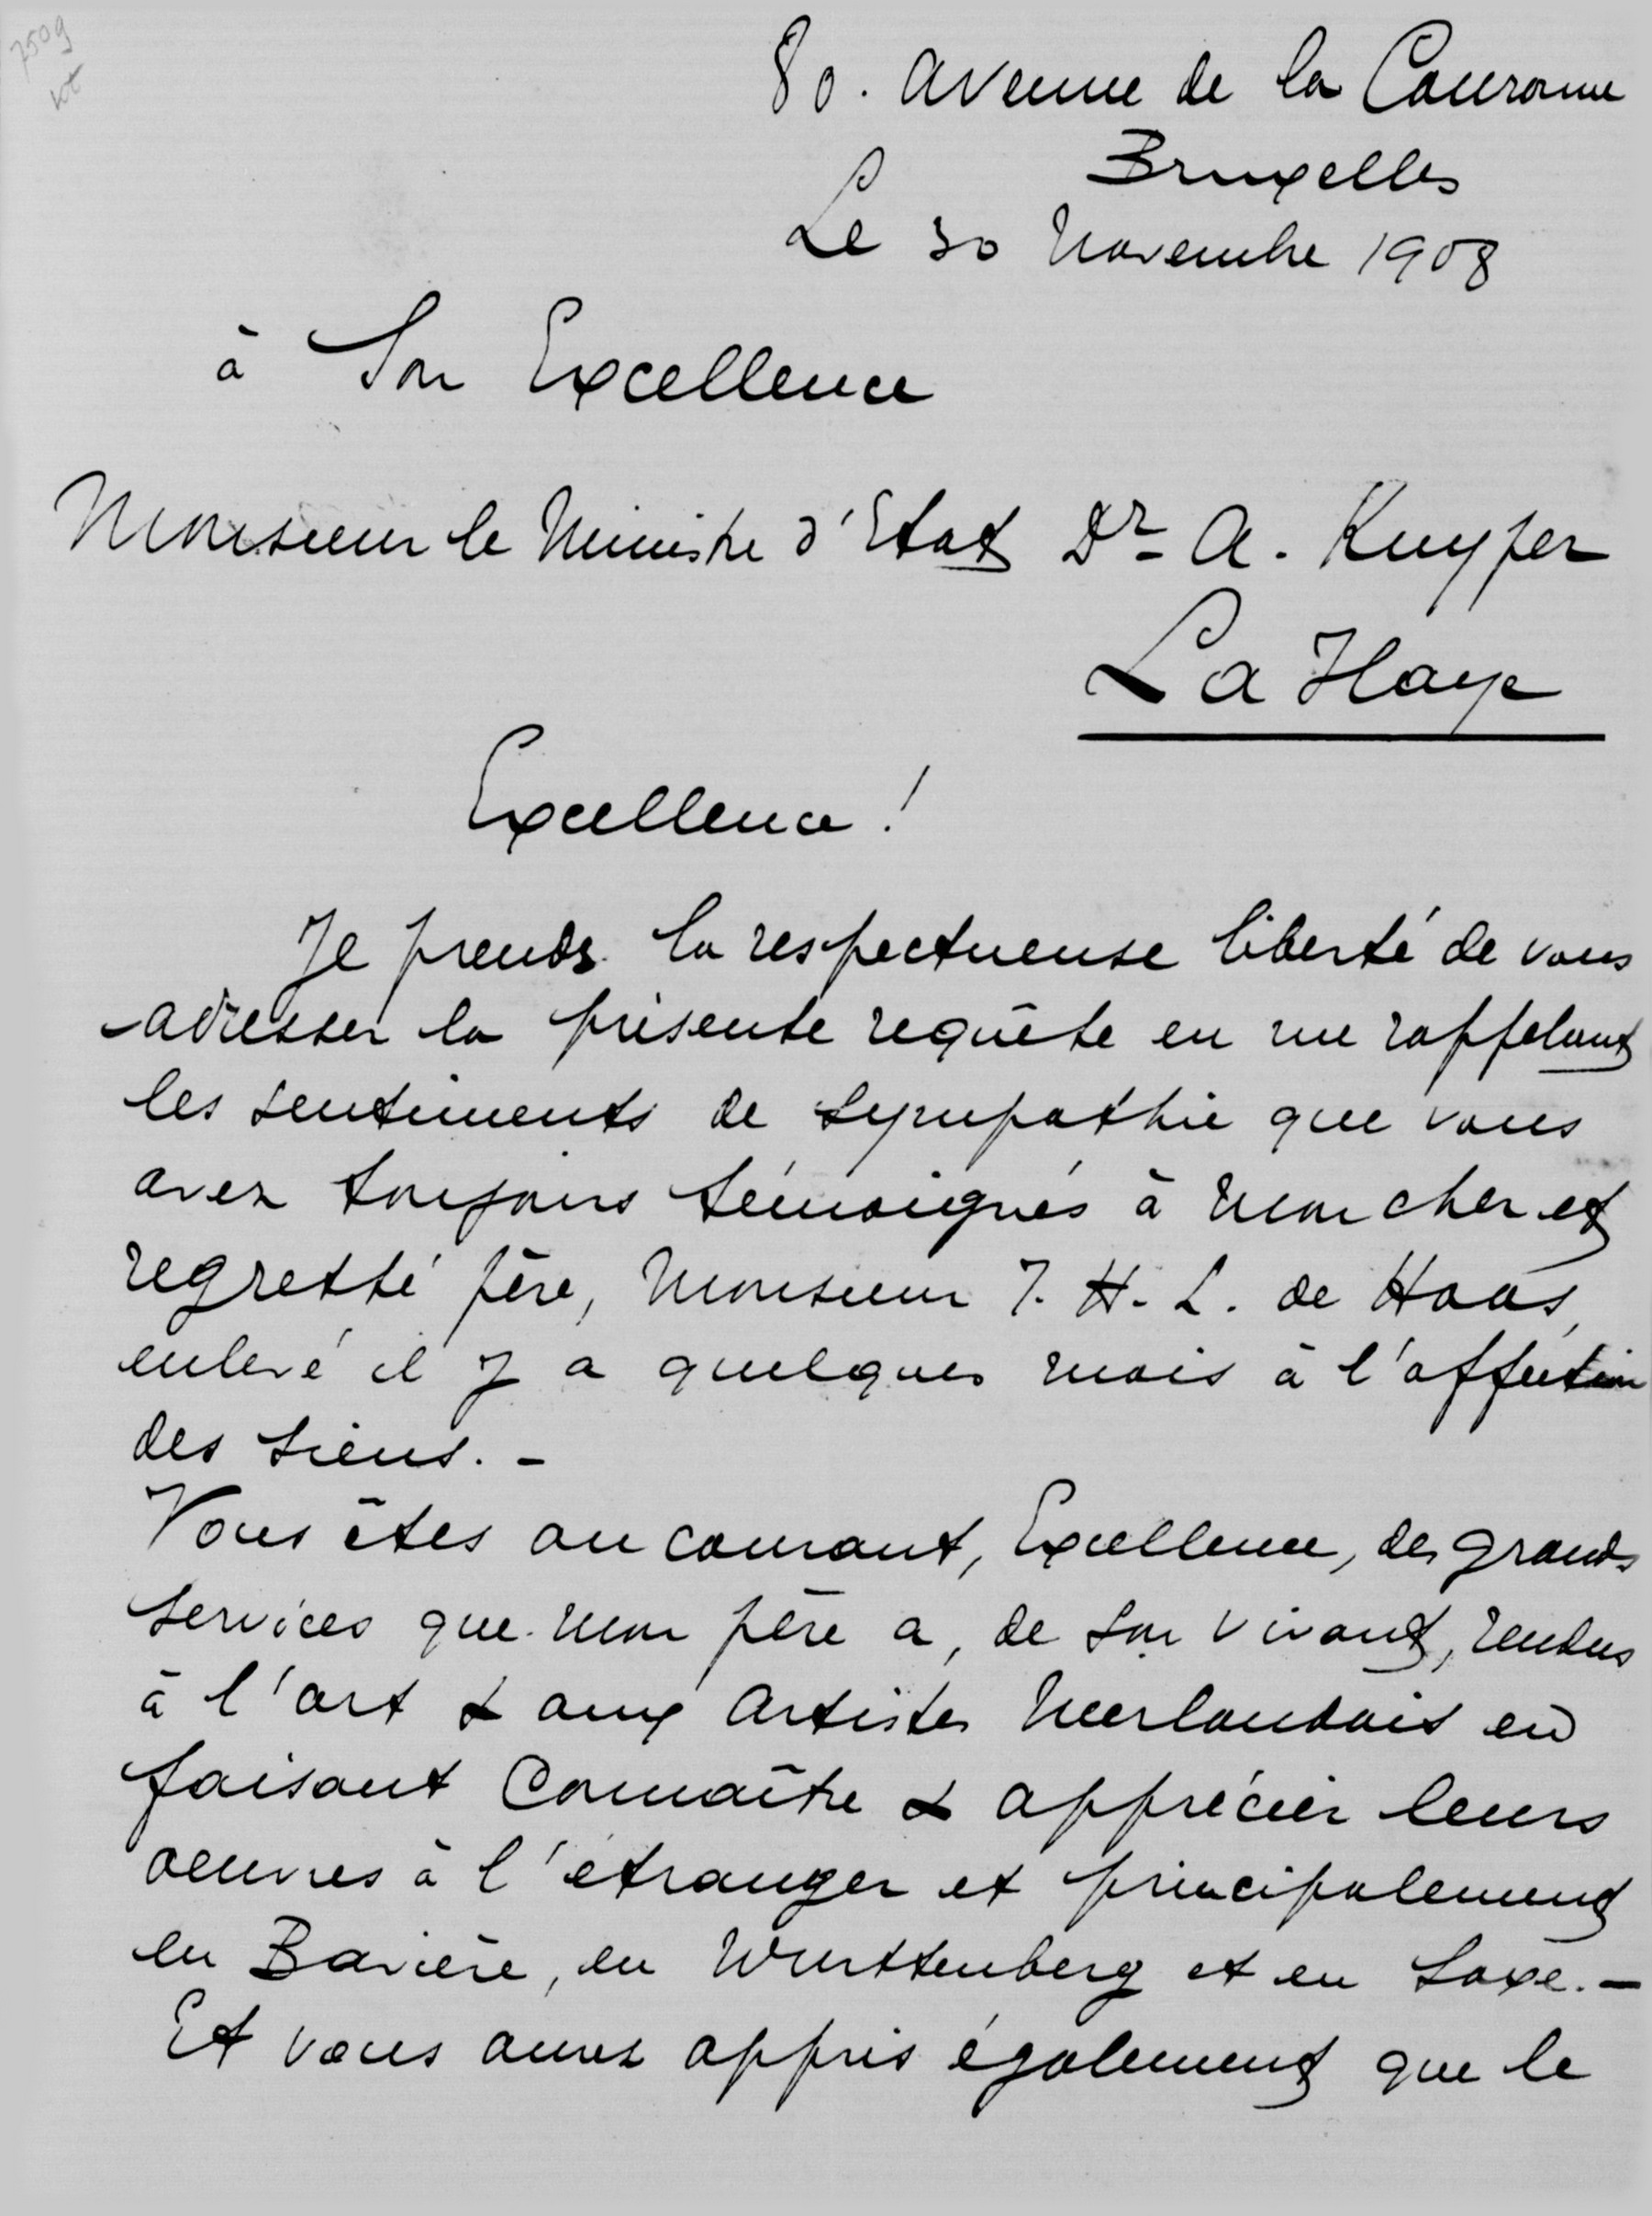 7509
80. Avenue de la Couronne
Bruxelles
Le 30 Novembre 1908
à Son Excellence
Monsieur le Ministre d'Etat Dr A. Kuyper
La Haye
Excellence!
Je prends la respectueuse liberté de vous
adresser la présente requête en me rappelant
les sentiments de sympathie que vous
avez toujours témoignés à mon cher et
regretté père, Monsieur J. H. L. de Haas,
enlevé il y a quelques mois à l'affection
des siens. -
Vous êtes au courant, Excellence, des grands
services que mon père a, de son vivant, rendus
à l'art & aux Artistes Néerlandais en
faisant connaître & apprécier leurs
oeuvres à l'étranger et principalement
en Bavière, en Wurttenberg et en Saxe. -
Et vous aurez appris également que le